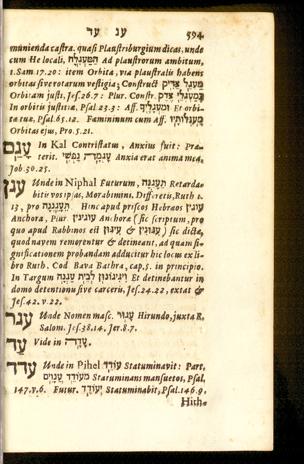 ענ עד 594
munienda castra, quasi Plaustriburgium dicas, unde
cum He locali, הַמַּעְגָּלָה Ad plaustrorum ambitum,
1. Sam. 17. 20: item Orbita, via plaustralis habens
orbitas sive rotarum vestigia; Construct מַעְגַּל צַדִּיק
Orbitam justi, Jes. 26. 7: Plur. Constr. בְּמַעְגְּלֵי צֶדֶק
In orbitis justitiæ. Psal. 23. 3: Aff. וּמַעְגָּלֶיךָ Et orbi-
ta tua, Psal. 65. 12. Fæmininum cum Aff. מַעְגְּלוֹתֶיהָ
Orbitas ejus, Pro. 5. 21.
עָגַם In Kal Contristatus, Anxius fuit: Præ-
terit. עָגְמָה נַפְשִׁי Anxia erat anima mea,
Job. 30. 25.
עָגַן Unde in Niphal Futurum, תֵּעָגֵנָה Retarda-
bitis vos ipsas, Morabimini, Differetis, Ruth 1.
13, pro תֵּעָגַנָּה Hinc apud priscos Hebræos עוֹגִין
Anchora, Plur. עוֹגִינִין Anchoræ (sic scriptum, pro
quo apud Rabbinos est עֹגֶן & עִגּוּן) sic dictæ,
quod navem remorentur & detineant, ad quam si-
gnificationem probandam adducitur hic locus ex li-
bro Ruth. Cod Bava Bathra, cap. 5. in principio.
In Targum לְבֵית עֲגָנָה Et detinebantur in
domo detentionu sive carceris, Jes. 24. 22, extat &
Jes. 42. v. 22.
עגר Unde Nomen masc. עָגוּר Hirundo, juxta R.
Salom. Jes. 38. 14. Jer. 8. 7.
עַד Vide in עָדָה.
עדד Unde in Pihel עוֹדֵד Statuminavit: Part,
מְעוֹדֵד עֲנָוִים Statuminans mansuetos, Psal,
147. v. 6. Futur. יְעוֹדֵד Statuminabit, Psal. 146. 9.
Hith-